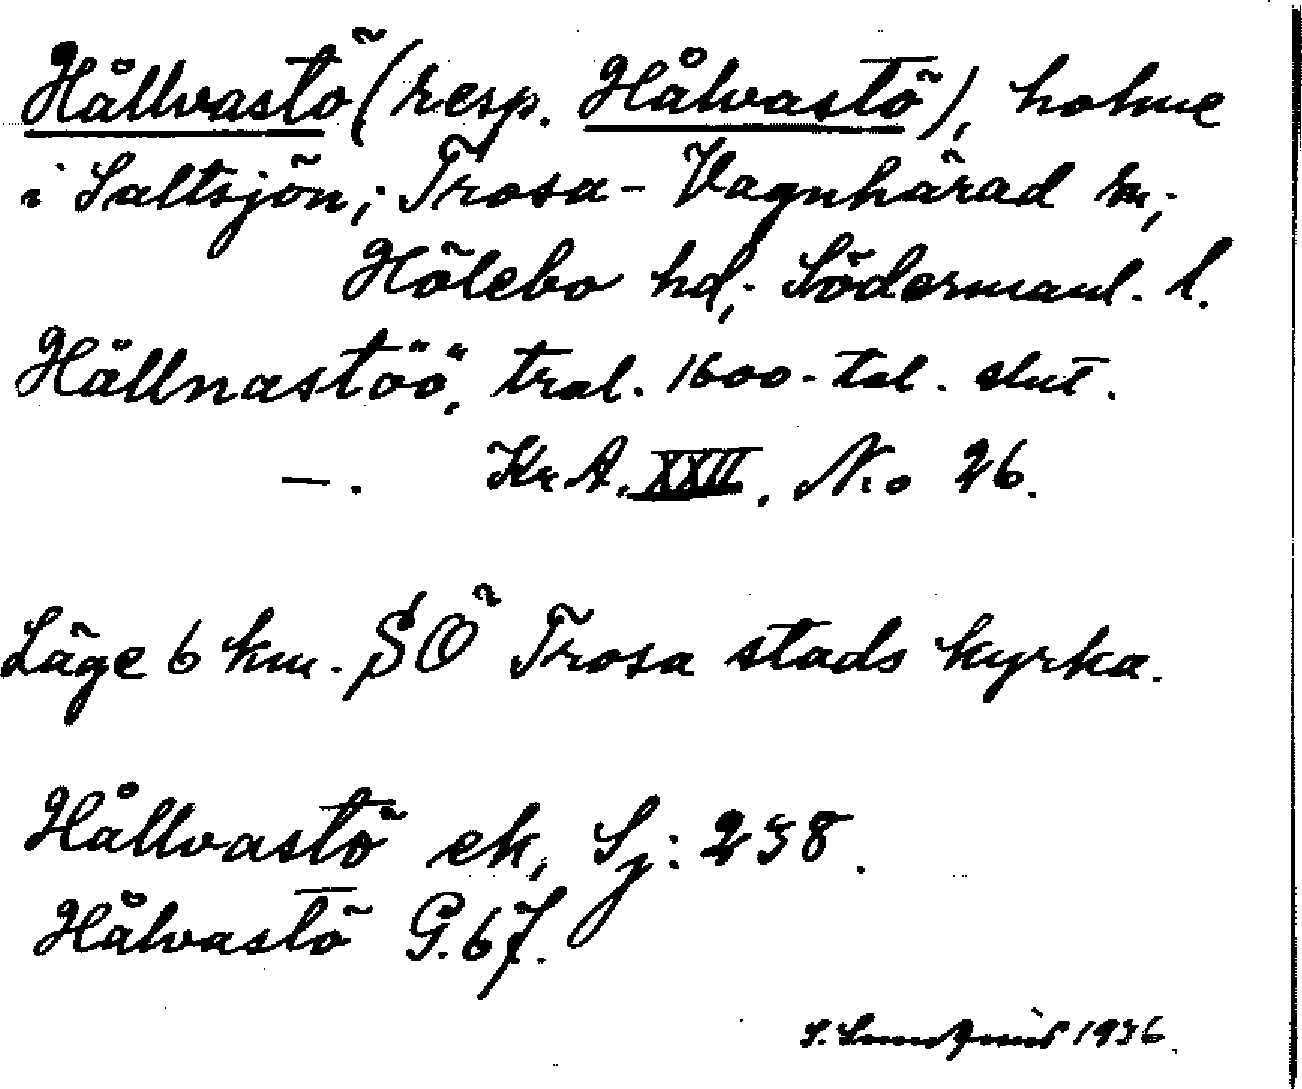 Hållvastö (resp. Hålvastö), holme
i Saltsjön; Trosa-Vagnhärad sn;
Hölebo hd; Södermanl. l.
Hållnastöö, tral. 1600-tal. slut.
—. Kr.A. XXII. No 26.
Läge 6 km. SÖ Trosa stads kyrka.
Hållvastö ek, Sj: 238.
Hålvastö G.67.
S. 1936